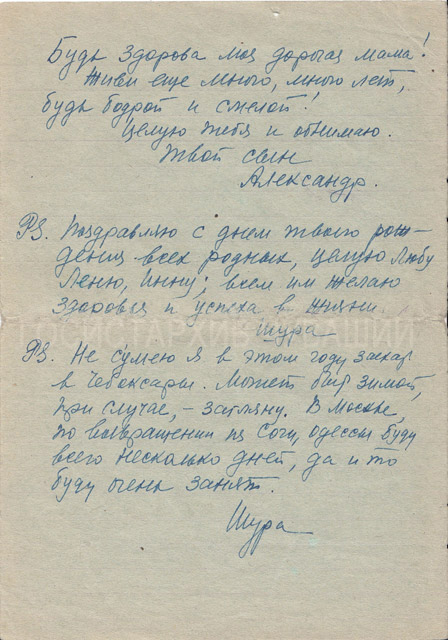 Будь здорова моя дорогая мама!
Живи еще много, много лет,
будь бодрой и смелой!
Целую тебя и обнимаю.
Твой сын
Александр.
PS. Поздравляю с днем твоего рож-
дения всех родных, целую Любу
Леню, Инну, всем им желаю
здоровья и успеха в жизни
Шура
PS. Не сумею я в этом году заехать
в Чебоксары. Может быть зимой,
при случае, - загляну. В Москве,
по возвращении из Сочи, Одессы буду
всего несколько дней, да и то
буду очень занят.
Шура